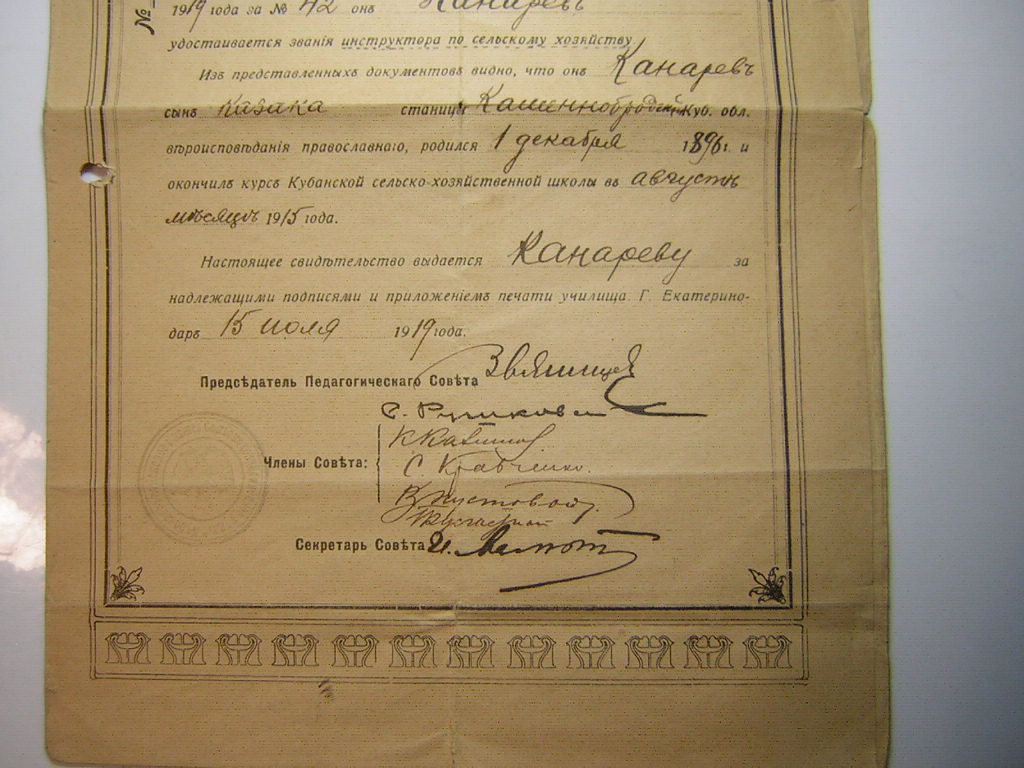 №
1919 года за № 42 онъ Канаревъ
удостаивается званія инструктора по сельскому хозяйству
Изъ представленныхъ документовъ видно, что онъ Канаревъ
сынъ казака станицы Каменнобродской Куб. обл.
вѣроисповѣданія православнаго, родился 1 декабря 1896 г. и
окончилъ курсъ Кубанской сельско-хозяйственной школы въ августѣ
мѣсяцѣ 1915 года.
Настоящее свидѣтельство выдается Канареву за
надлежащими подписями и приложеніемъ печати училища. Г. Екатерино-
даръ 15 июля 1919 года.
Предсѣдатель Педагогическаго Совѣта
Члены Совѣта:
С. Кравченко.
В. Пустовой
Секретарь Совѣта И.